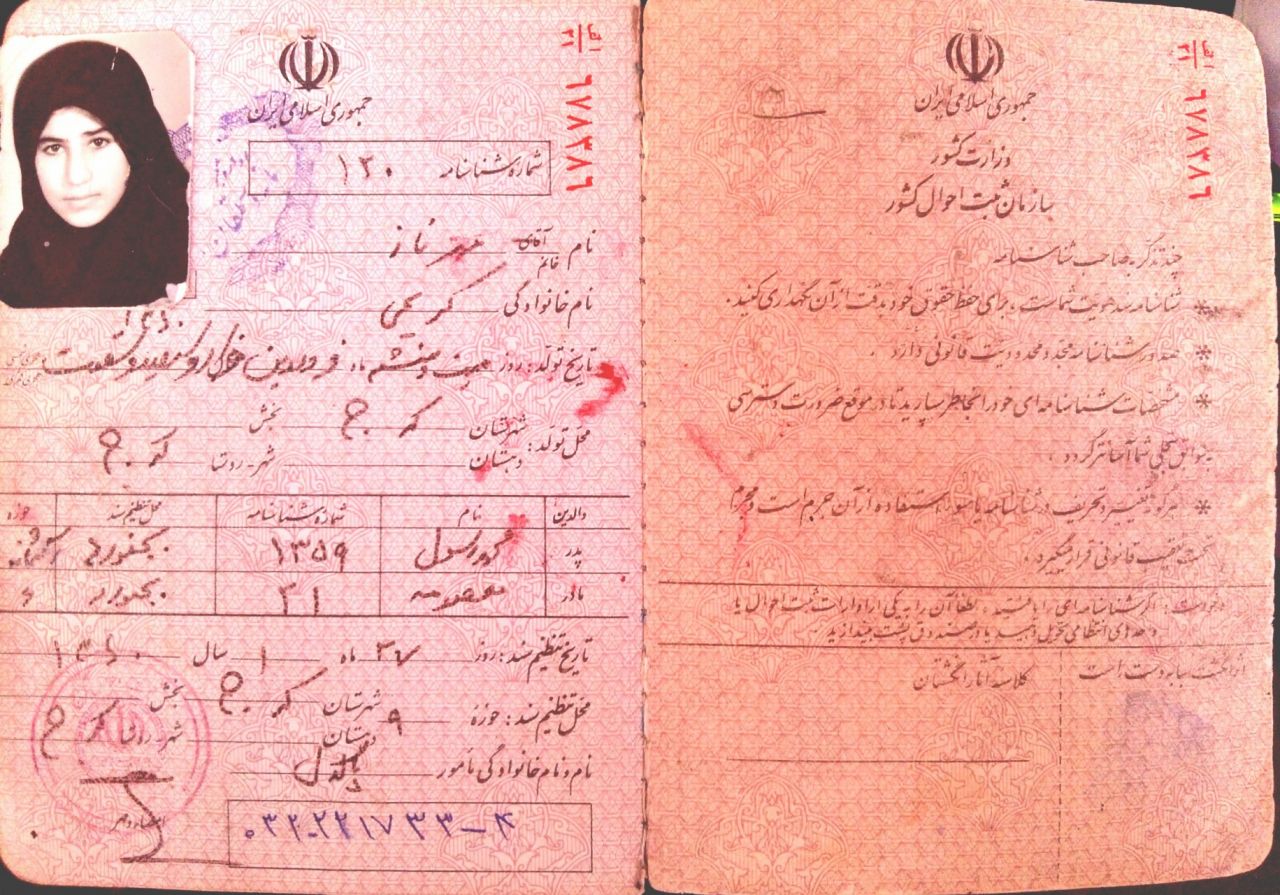 جمهوری اسلامی ایران
وزارت کشور
سازمان ثبت احوال کشور
چند تذکر به صاحب شناسنامه
* شناسنامه سند هویت شماست، برای حفظ حقوق خود بدقت از آن نگهداری کنید.
* صدور شناسنامه مجدد محدودیت قانونی دارد.
* مشخصات شناسنامه‌ای خود را بخاطر بسپارید تا در موقع ضرورت دسترسی
بسوابق سجلی شما آسانتر گردد.
* هرگونه تغییر و تحریف در شناسنامه یا سوء استفاده از آن جرم است و مجرم
تحت تعقیب قانونی قرار میگیرد.
درخواست: اگر شناسنامه‌ای را یافتید، لطفا آن را به یکی از ادارات ثبت احوال یا
واحدهای انتظامی تحویل دهید یا در صندوق پست بیندازید
اثر انگشت سبابه دست راست
کلاسه آثار انگشتان
الف
۲۱
۶۸۳۸۷۲
جمهوری اسلامی ایران
شماره شناسنامه ۱۲۰
نام آقای خانم مهرناز
نام خانوادگی کریمی
۱۳۶۰
تاریخ تولد: روز بیست و هشتم ماه فروردین هزار و سیصد و شصت
محل تولد: شهرستان کرج بخش
دهستان شهر-روستا کرج
والدین نام شماره شناسنامه محل تنظیم سند حوزه
پدر محمد رسول ۱۳۵۹ بجنورد
مادر معصومه ۳۱ بجنورد
تاریخ تنظیم سند: روز ماه ۱ سال ۱۳۶۰
محل تنظیم سند: حوزه ۹ شهرستان کرج بخش
دهستان شهر-روستا کرج
نام و نام خانوادگی مأمور پاکدل
امضاء و مهر
۰۳۲-۲۲۱۷۳۳-۴